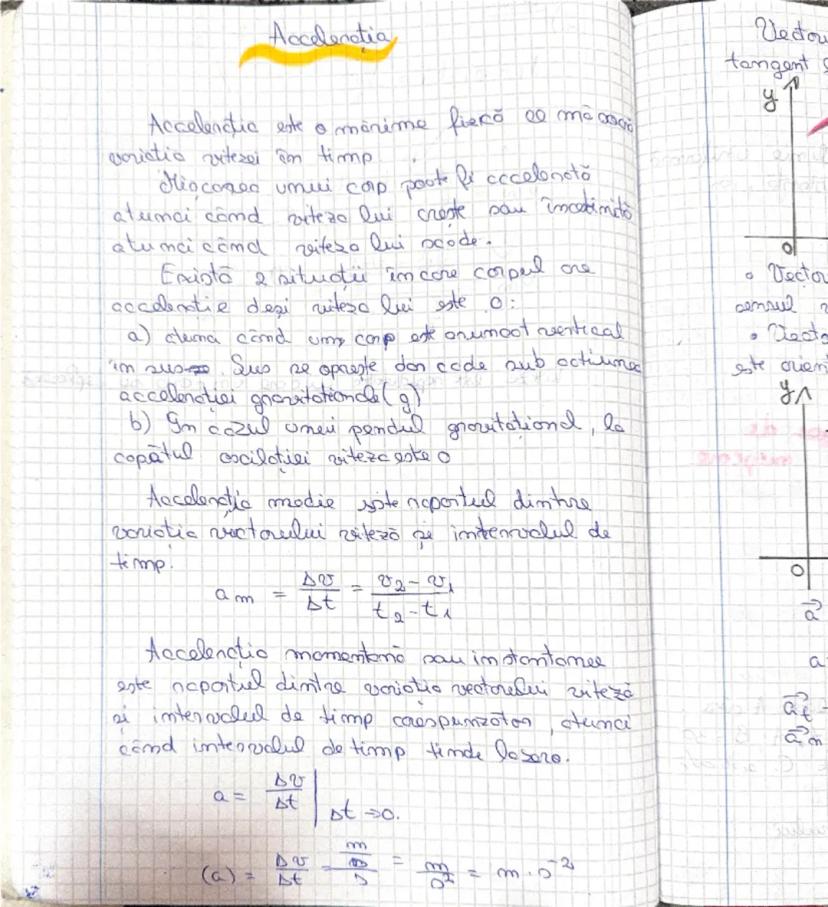 Accelerația
Accelerația este o mărime fizică ce măsoară
variația vitezei în timp
Mișcarea unui corp poate fi accelerată
atunci când viteza lui crește sau încetinită
atunci când viteza lui scade.
Există 2 situații în care corpul are
accelerație deși viteza lui este 0:
a) atunci când un corp este aruncat vertical
în sus. Sus se oprește dar cade sub acțiunea
accelerației gravitaționale (g)
b) În cazul unui pendul gravitațional, la
capătul oscilației viteza este 0
Accelerația medie este raportul dintre
variația vectorului viteză și intervalul de
timp.
am = Δv/Δt = (v2 - v1)/(t2 - t1)
Accelerația momentană sau instantanee
este raportul dintre variația vectorului viteză
și intervalul de timp corespunzător, atunci
când intervalul de timp tinde la zero.
a = Δv/Δt | Δt → 0.
(a) = Δv/Δt = (m/s)/s = m/s² = m · s⁻²
Vectou
tangent
y
0
• Vector
sensul
• Vecto
este orien
y
0
a⃗
a
a⃗t
a⃗n